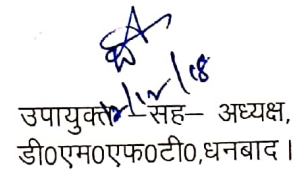 12/12/18
उपायुक्त –सह– अध्यक्ष,
डी०एम०एफ०टी०,धनबाद।